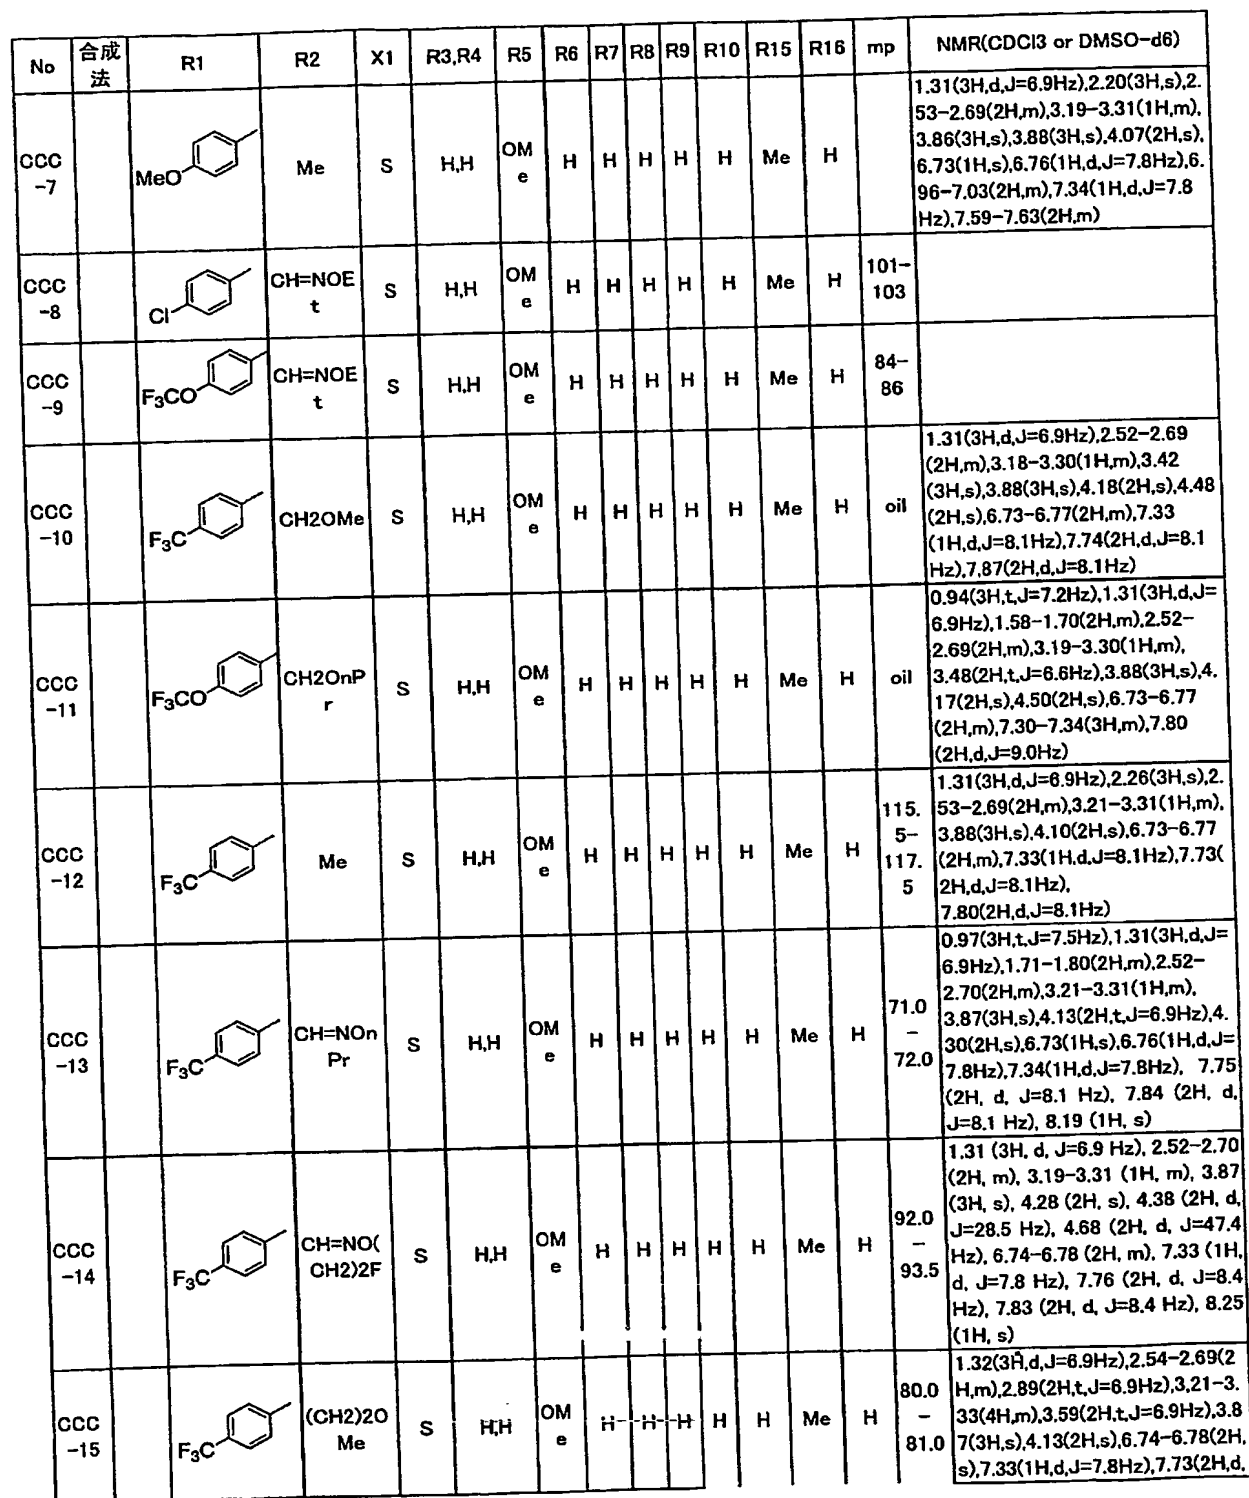 No 合成法 R1 R2 X1 R3,R4 R5 R6 R7 R8 R9 R10 R15 R16 mp NMR(CDCl3 or DMSO-d6)
CCC-7 MeO Me S H,H OMe H H H H H Me H 1.31(3H,d,J=6.9Hz),2.20(3H,s),2.
53-2.69(2H,m),3.19-3.31(1H,m),
3.86(3H,s),3.88(3H,s),4.07(2H,s),
6.73(1H,s),6.76(1H,d,J=7.8Hz),6.
96-7.03(2H,m),7.34(1H,d,J=7.8
Hz),7.59-7.63(2H,m)
CCC-8 Cl CH=NOEt S H,H OMe H H H H H Me H 101-103
CCC-9 F3CO CH=NOEt S H,H OMe H H H H H Me H 84-86
CCC-10 F3C CH2OMe S H,H OMe H H H H H Me H oil 1.31(3H,d,J=6.9Hz),2.52-2.69
(2H,m),3.18-3.30(1H,m),3.42
(3H,s),3.88(3H,s),4.18(2H,s),4.48
(2H,s),6.73-6.77(2H,m),7.33
(1H,d,J=8.1Hz),7.74(2H,d,J=8.1
Hz),7,87(2H,d,J=8.1Hz)
CCC-11 F3CO CH2OnPr S H,H OMe H H H H H Me H oil 0.94(3H,t,J=7.2Hz),1.31(3H,d,J=
6.9Hz),1.58-1.70(2H,m),2.52-
2.69(2H,m),3.19-3.30(1H,m),
3.48(2H,t,J=6.6Hz),3.88(3H,s),4.
17(2H,s),4.50(2H,s),6.73-6.77
(2H,m),7.30-7.34(3H,m),7.80
(2H,d,J=9.0Hz)
CCC-12 F3C Me S H,H OMe H H H H H Me H 115.5-117.5 1.31(3H,d,J=6.9Hz),2.26(3H,s),2.
53-2.69(2H,m),3.21-3.31(1H,m),
3.88(3H,s),4.10(2H,s),6.73-6.77
(2H,m),7.33(1H,d,J=8.1Hz),7.73(
2H,d,J=8.1Hz),
7.80(2H,d,J=8.1Hz)
CCC-13 F3C CH=NOnPr S H,H OMe H H H H H Me H 71.0-72.0 0.97(3H,t,J=7.5Hz),1.31(3H,d,J=
6.9Hz),1.71-1.80(2H,m),2.52-
2.70(2H,m),3.21-3.31(1H,m),
3.87(3H,s),4.13(2H,t,J=6.9Hz),4.
30(2H,s),6.73(1H,s),6.76(1H,d,J=
7.8Hz),7.34(1H,d,J=7.8Hz), 7.75
(2H, d, J=8.1 Hz), 7.84 (2H, d,
J=8.1 Hz), 8.19 (1H, s)
CCC-14 F3C CH=NO(CH2)2F S H,H OMe H H H H H Me H 92.0-93.5 1.31 (3H, d, J=6.9 Hz), 2.52-2.70
(2H, m), 3.19-3.31 (1H, m), 3.87
(3H, s), 4.28 (2H, s), 4.38 (2H, d,
J=28.5 Hz), 4.68 (2H, d, J=47.4
Hz), 6.74-6.78 (2H, m), 7.33 (1H,
d, J=7.8 Hz), 7.76 (2H, d, J=8.4
Hz), 7.83 (2H, d, J=8.4 Hz), 8.25
(1H, s)
CCC-15 F3C (CH2)2OMe S H,H OMe H H H H H Me H 80.0-81.0 1.32(3H,d,J=6.9Hz),2.54-2.69(2
H,m),2.89(2H,t,J=6.9Hz),3.21-3.
33(4H,m),3.59(2H,t,J=6.9Hz),3.8
7(3H,s),4.13(2H,s),6.74-6.78(2H,
s),7.33(1H,d,J=7.8Hz),7.73(2H,d,